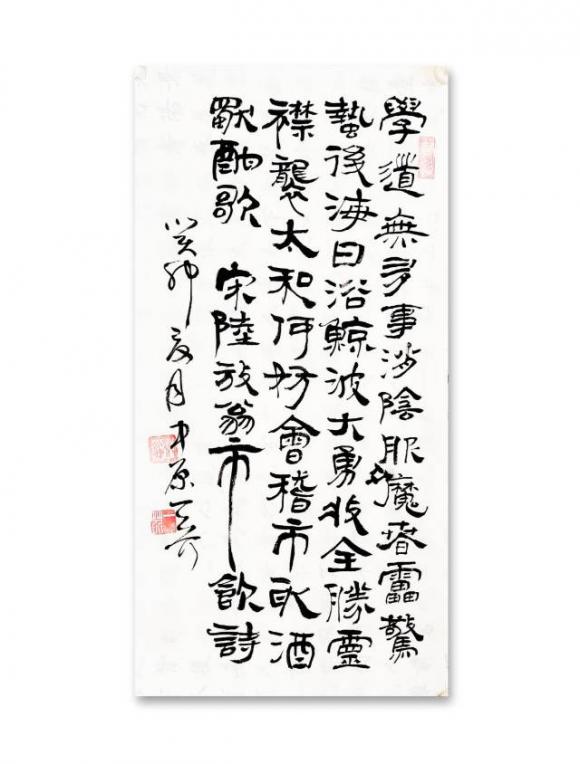 學道無多事消陰服众魔春雷驚
蟄後海日浴鯨波大勇收全勝靈
襟襲太和何妨會稽市取酒
獻酬歌 宋陸放翁市飲詩
癸卯夏月中原